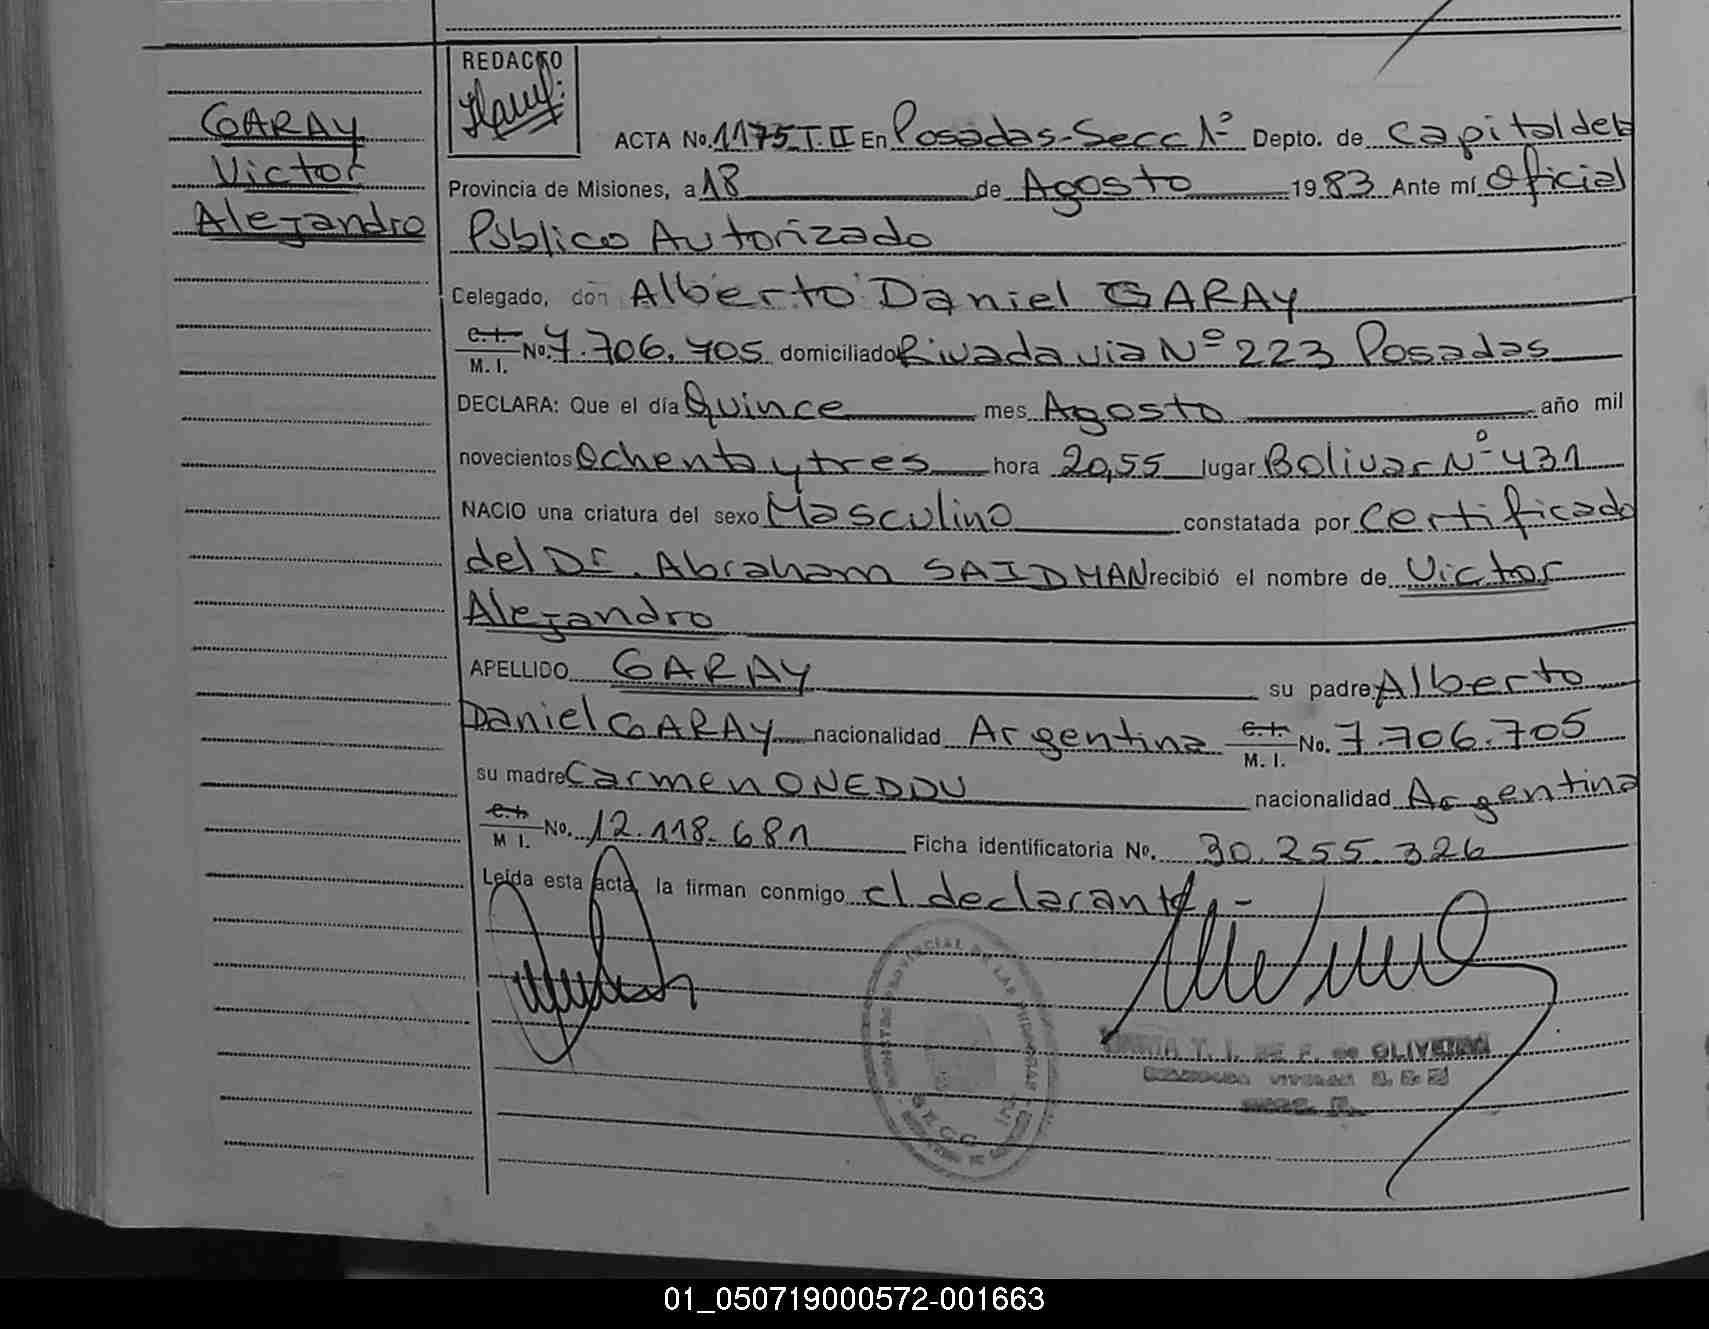 REDACTO
GARAY
Victor
Alejandro
ACTA No. 1175 T.II En Posadas-Secc 1º Depto. de Capital de la
Provincia de Misiones, a 18 de Agosto 1983 Ante mí Oficial
Público Autorizado
Celegado, don Alberto Daniel GARAY
C.I. M. I. No. 7.706.705 domiciliado Rivadavia Nº 223 Posadas
DECLARA: Que el día Quince mes Agosto año mil
novecientos Ochenta y tres hora 20,55 lugar Bolivar Nº 431
NACIO una criatura del sexo Masculino constatada por Certificado
del Dr. Abraham SAIDMAN recibió el nombre de Victor
Alejandro
APELLIDO GARAY su padre Alberto
Daniel GARAY nacionalidad Argentina C.I. M. I. No. 7.706.705
su madre Carmen ONEDDU nacionalidad Argentina
C.I. M I. No. 12.118.681 Ficha identificatoria No. 30.255.326
Leída esta acta, la firman conmigo el declarante.-
T. I. DE F. de OLIVEIRA
01_050719000572-001663